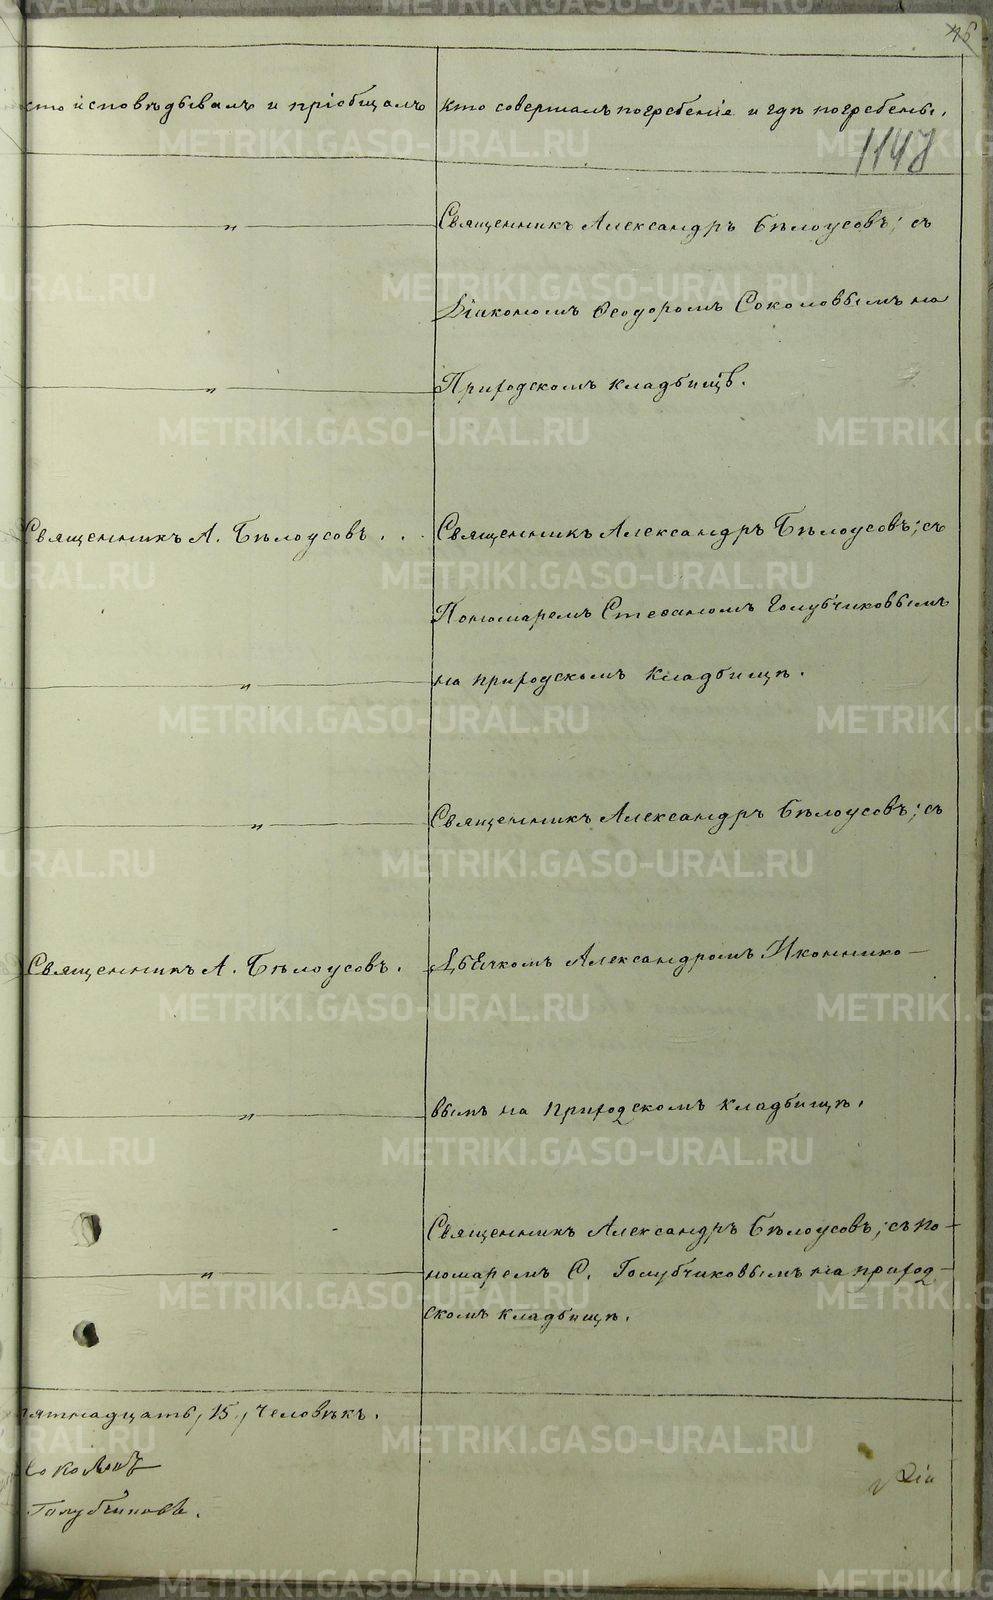 кто исповѣдывалъ и пріобщалъ
кто совершалъ погребеніе и гдѣ погребены.
Священникъ Александръ Бѣлоусовъ; съ
Діакономъ Ѳеодоромъ Соколовымъ на
Приходскомъ кладбищѣ.
Священникъ А. Бѣлоусовъ . .
Священникъ Александръ Бѣлоусовъ; съ
Пономаремъ Стефаномъ Голубчиковымъ
на приходскомъ кладбищѣ.
Священникъ Александръ Бѣлоусовъ; съ
Священникъ А. Бѣлоусовъ.
Дьячкомъ Александромъ Иконнико-
вымъ на приходскомъ кладбищѣ.
Священникъ Александръ Бѣлоусовъ; съ по-
номаремъ С. Голубчиковымъ на приход-
скомъ кладбищѣ.
пятнадцать, 15, человѣкъ.
Соколовъ
Голубчиковъ.
METRIKI.GASO-URAL.RU